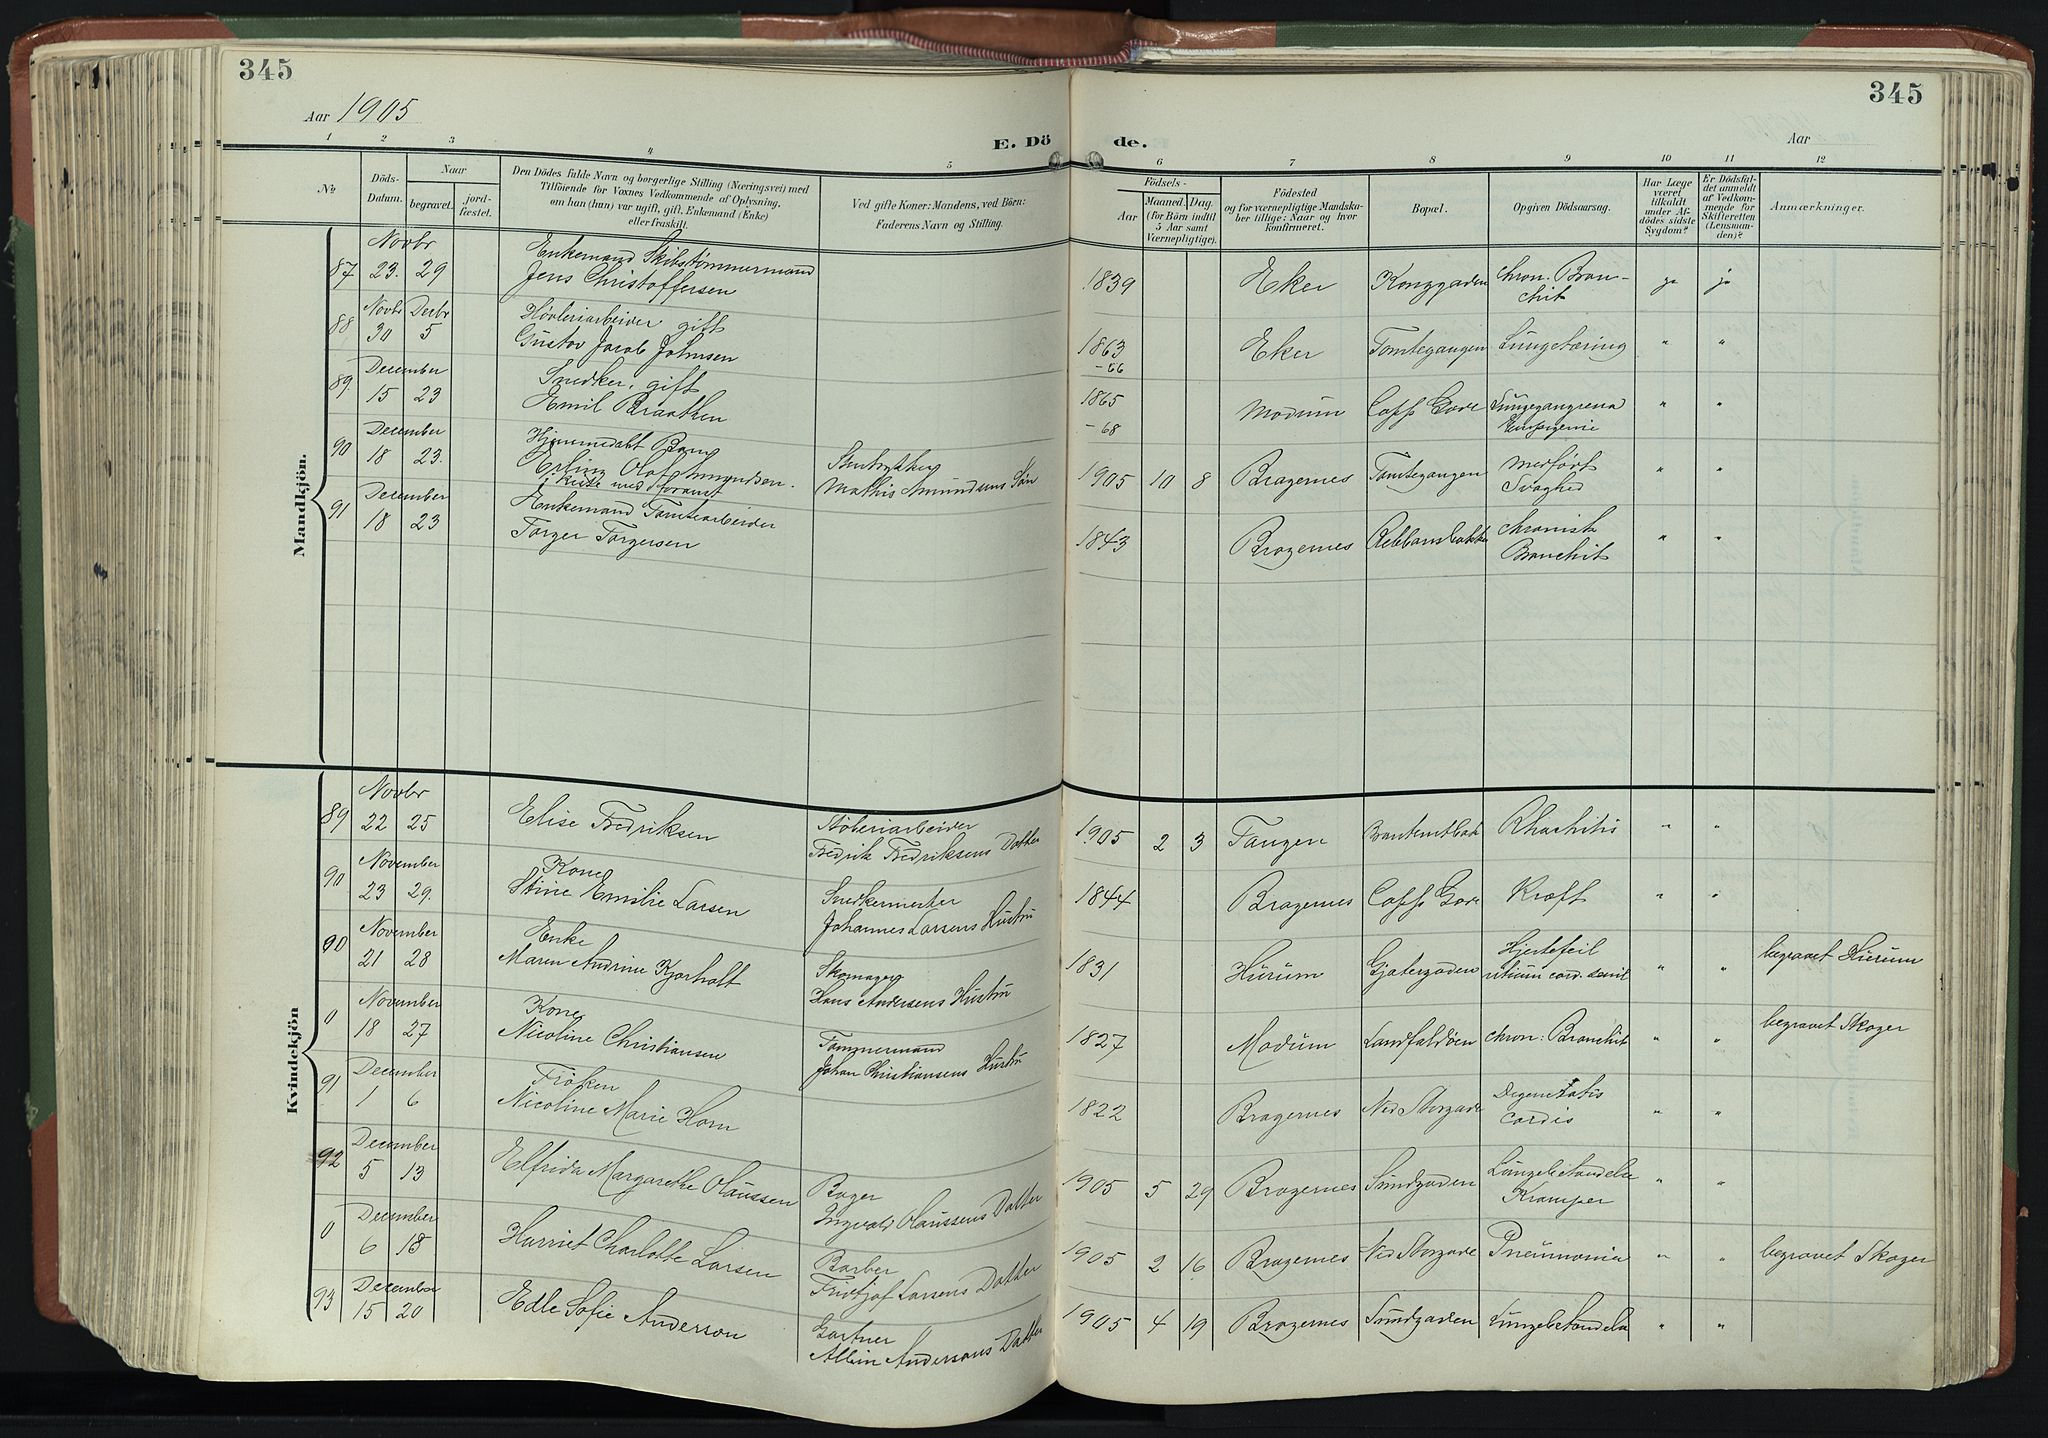 345
345
Aar 1905
Aar
E. Dö
de.
1 2 3 4 5 6 7 8 9 10 11 12
No
Döds-
Datum.
Naar
begravet.
jord-
fæstet.
Den Dödes fulde Navn og borgerlige Stilling (Næringsvei) med
Tilföiende for Voxnes Vedkommende af Oplysning,
om han (hun) var ugift, gift, Enkemand (Enke)
eller fraskilt.
Ved gifte Koner: Mandens, ved Börn:
Faderens Navn og Stilling.
Födsels-
Aar
Maaned.
Dag.
(for Börn indtil
5 Aar samt
Værnepligtige).
Födested
og for værnepligtige Mandska-
ber tillige: Naar og hvor
konfirmeret.
Bopæl.
Opgiven Dödsaarsag.
Har Læge
været
tilkaldt
under Af-
dödes sidste
Sygdom?
Er Dödsfal-
det anmeldt
af Vedkom-
mende for
Skifteretten
(Lensman-
den)?
Anmærkninger.
Mandkjön.
Novbr
87 23. 29
Enkemand Skibstømmermand
Jens Christoffersen
1839 Eker Konggaden chron. Bron-
chit
ja ja
Novbr Decbr
88 30 5
Høvleriarbeider gift
Gustav Jacob Johnsen
1863 Eker Tomtegangen Lungetæring " "
-66
December
89. 15 23
Snedker, gift
Emil Braathen
1865 Modum Capps Gade Lungegangrena " "
-68
December
90 18 23.
Hjemmedøbt Barn
Erling Olaf Amundsen.
Kiste med foranst
Mathis Amundsens Søn
1905 10 8 Bragernes Tomtegangen Medført
Svaghed
" "
December
91 18 23
Enkemand Tomtearbeider
Torger Torgersen
1843 Bragernes Rebbansbakken chronisk
Bronchit
" "
Kvindekjön
Novbr
89 22 25
Elise Fredriksen
Fredrik Fredriksens Datter
1905 2 3 Tangen Rhachitis " "
November
90 23 29.
Kone
Stine Emilie Larsen
Snedkermester
Johannes Larsens Hustru
1844 Bragernes Capps Gade Kræft " "
November
90 21 28
Enke
Maren Andrine Kjorholt
Skomager
Hans Andersens Hustru
1831 Hurum Gjetergaden Hjertefeil
vitium cord. senil
" " begravet Hurum
November
0 18 27
Kone
Nicoline Christiansen
Tømmermand
Johan Christiansens Hustru
1827 Modum Landfaldøen chron: Bronchit " " begravet Skoger
December
91 1 6
Frøken
Nicoline Marie Horn
1822 Bragernes Ned Storgade Degeneratio
cordis
" "
December
92 5 13
Elfrida Margarethe Olaussen
Bager
Ingvald Olaussens Datter
1905 5 29 Bragernes Sundgaden Lungebetændelse
Kramper
" "
December
0 6 13
Harriet Charlotte Larsen
Barber
Fridtjof Larsens Datter
1905 2 16 Bragernes Ned Storgade Pneumonia " " begravet Skoger
December
93 15 20
Edle Sofie Anderson
Gartner
Albin Andersons Datter
1905 4 19 Bragernes Sundgaden Lungebetændelse " "